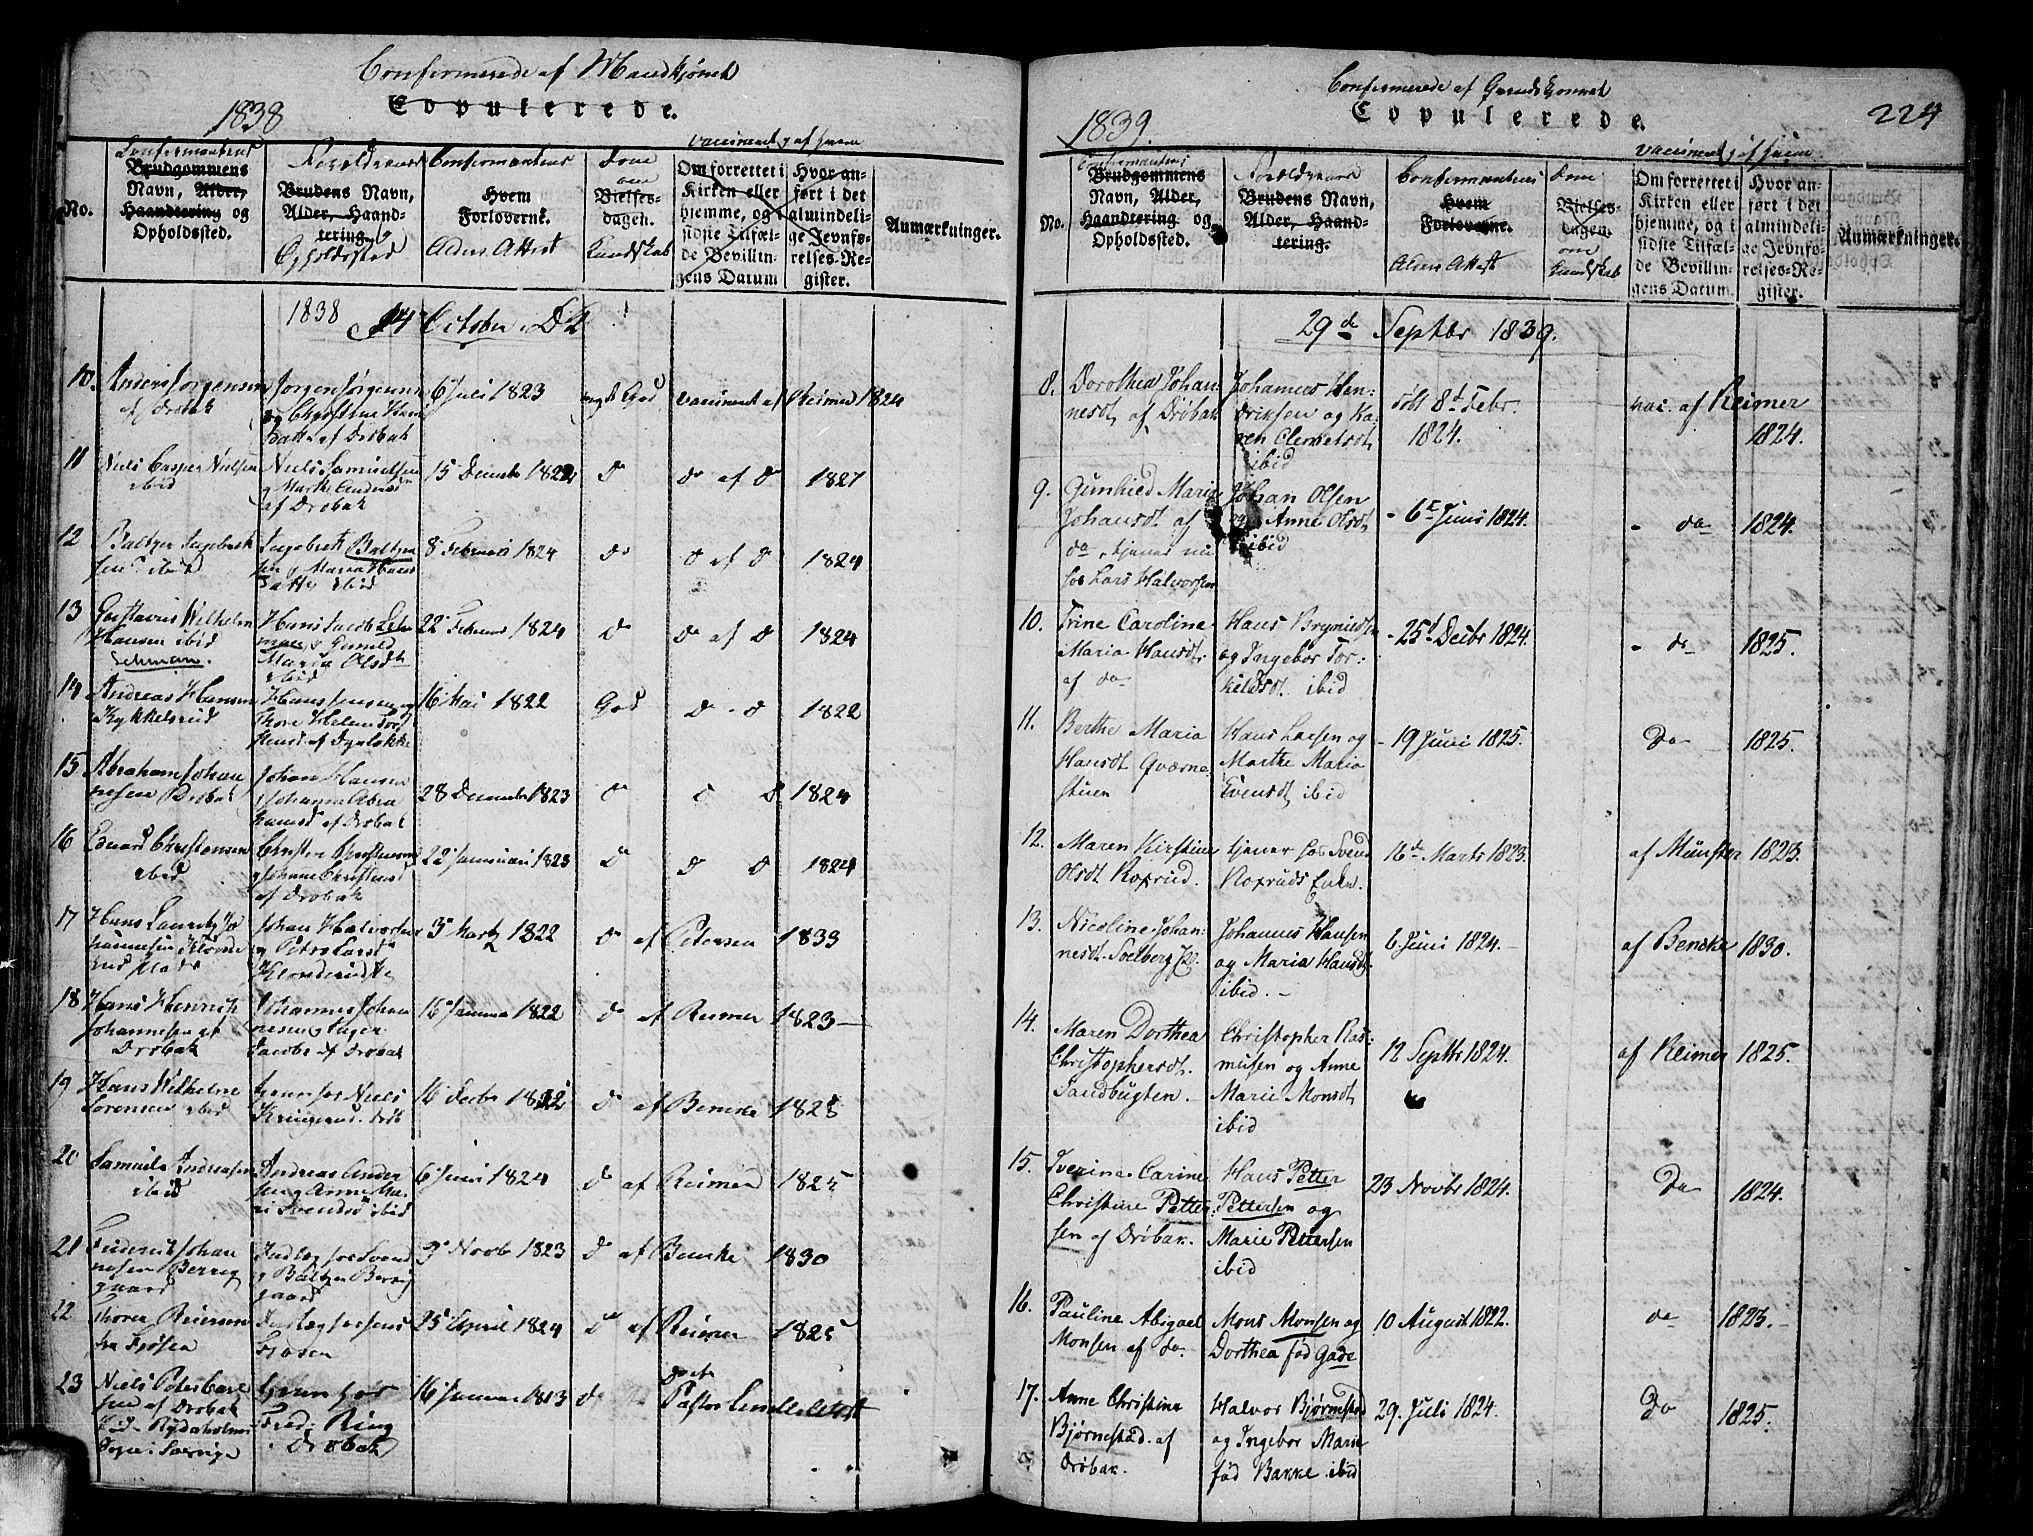 Confirmerede af Mandkjønet
Copulerede.
1838
vaccineret, af hvem
No.
Confirmantens
Brudgommens
Navn, Alder,
Haandtering og
Opholdssted.
Forældrenes
Brudens Navn,
Alder, Haand-
tering.
Opholdssted
Confirmantens
Hvem
Forloverne.
Alder Attest
Dom
om
Vielses-
dagen.
Kundskab
Om forrettet i
Kirken eller
hjemme, og i
sidste Tilfæl-
de Bevillin-
gens Datum
Hvor an-
ført i det
almindeli-
ge Jevnfø-
relses-Re-
gister.
Anmærkninger.
1838 14 October
10. Anders Jørgensen
af Drøbak
Jørgen Jørgensen
og Christine
af Drøbak
6 Juli 1823
vaccineret af Reimer 1824
11 Niels Casper Nielsen
ibid
Niels Samuelsen
og Marthe Andersd
af Drøbak
15 Decembr 1822
do af do 1827
12 Baltzer Ingebret
sen ibid
Ingebret Baltzer
sen og Maria
ibid
8 Februari 1824
do af do 1824
13 Gustavus Wilhelm
Hansen ibid
Lehman.
Hans Jacob Leh
man og Gunild
Maria Olsdt
ibid
22 Februar 1824
do af do 1824
14 Andreas Hansen
Kykkelsrud
Hans Jensen og
af Dyrløkke
16 Mai 1822
God
do - do 1822
15 Abraham Johan
nesen Drøbak
Johan Hansen
og Johanne Abra
hamsd af Drøbak
28 December 1823
do do 1824
16 Eduard Christensen
ibid
af Drøbak
22 Januari 1823
do do 1824
17 Hans Lauritz Jo
hannesen
Johan Halvorsen
og Petro Larsd
3 Martz 1822
do af Petersen 1833
18 Hans Henrich
Johannesen af
Drøbak
Johannes Johan
nesen og Inger
Jacobs af Drøbak
15 Januar 1822
do af Reimer 1823
19 Hans Wilhelm
Sørensen ibid
hos Niels
16 Decbr 1822
do af Bencke 1825
20 Samuel Andreasen
ibid
Andreas Ander
sen og Anne Ma
ri Svendsd ibid
6 Juni 1824
do af Reimer 1825
21 Friderich Johan
nesen Berreg
gaard
Indlæg hos Svend
og Baltzer Berreg
gaard
9 Novb 1823
do af Bencke 1830
22 Thorer Reiersen
fra Fjøsen
Indlæg hos Jens
Fjøsen
25 April 1824
do af Reimer 1825
23 Niels Peter
sen af Drøbak
Sogn i Sverrige
Tjener hos
Fred: Ring
i Drøbak
16 Januar 1813
do
Pastor Attest
Confirmerede af Qvindekjønnet
Copulerede.
1839.
224
vaccineret, af hvem
No.
Confirmantens
Brudgommens
Navn, Alder,
Haandtering og
Opholdssted.
Forældrenes
Brudens Navn,
Alder, Haand-
tering.
Confirmantens
Hvem
Forloverne.
Alder Attest
Dom
Vielses-
dagen.
om
Kundskab
Om forrettet i
Kirken eller
hjemme, og i
sidste Tilfæl-
de Bevillin-
gens Datum.
Hvor an-
ført i det
almindeli-
ge Jevnfø-
relses-Re-
gister.
Anmærkninger.
29de Septbr 1839.
8. Dorothea Johan-
nesdt af Drøbak
Johannes Hen-
driksen og Ka-
ren Clemetsdt
ibid
født 8d Febr.
1824.
vac. af Reimer
1824.
9. Gunhild Marie
Johansdt af
do, tjener nu
hos Lars Halvorsen
Johan Olsen
og Anne Olsdt
ibid
- 6te Juni 1824.
- do 1824.
10. Trine Caroline
Maria Hansdt
af do
Hans Brynildsen
og Ingebor Tor-
kildsdt ibid
- 25d Decbr 1824.
- do 1825.
11. Berthe Maria
Hansdt Qværne-
stuen
Hans Larsen og
Marthe Maria
Evensdt ibid
- 19 Juni 1825.
Do 1825.
12. Maren Kirstine
Olsdt Roxrud.
tjener hos Svend
Roxruds Enke.
16de Marts 1823.
af Münster 1823.
13. Nicoline Johan-
nesdt. Solberg
Johannes Hansen
og Maria Hansdt.
ibid. -
6 Juni 1824. -
af Bencke 1830.
14. Maren Dorthea
Christophersdt.
Sandbugten. -
Christopher Ras-
musen og Anne
Marie Monsdt
ibid
12 Septbr 1824.
af Reimer 1825.
15. Iverine Carine
Christine Petter-
sen af Drøbak.
Hans Petter
Pettersen og
Marie Pettersen
ibid
23 Novbr 1824.
Do 1824.
16. Pauline Abigael
Monsen af do.
Mons Monsen og
Dorthea fød Gade
10 August 1822.
do 1823. -
17. Anne Christine
Bjørnestad. af
Drøbak.
Halvor Bjørnestad
og Ingebor Marie
fød Bakke ibid
29. Juli 1824.
Do 1825.